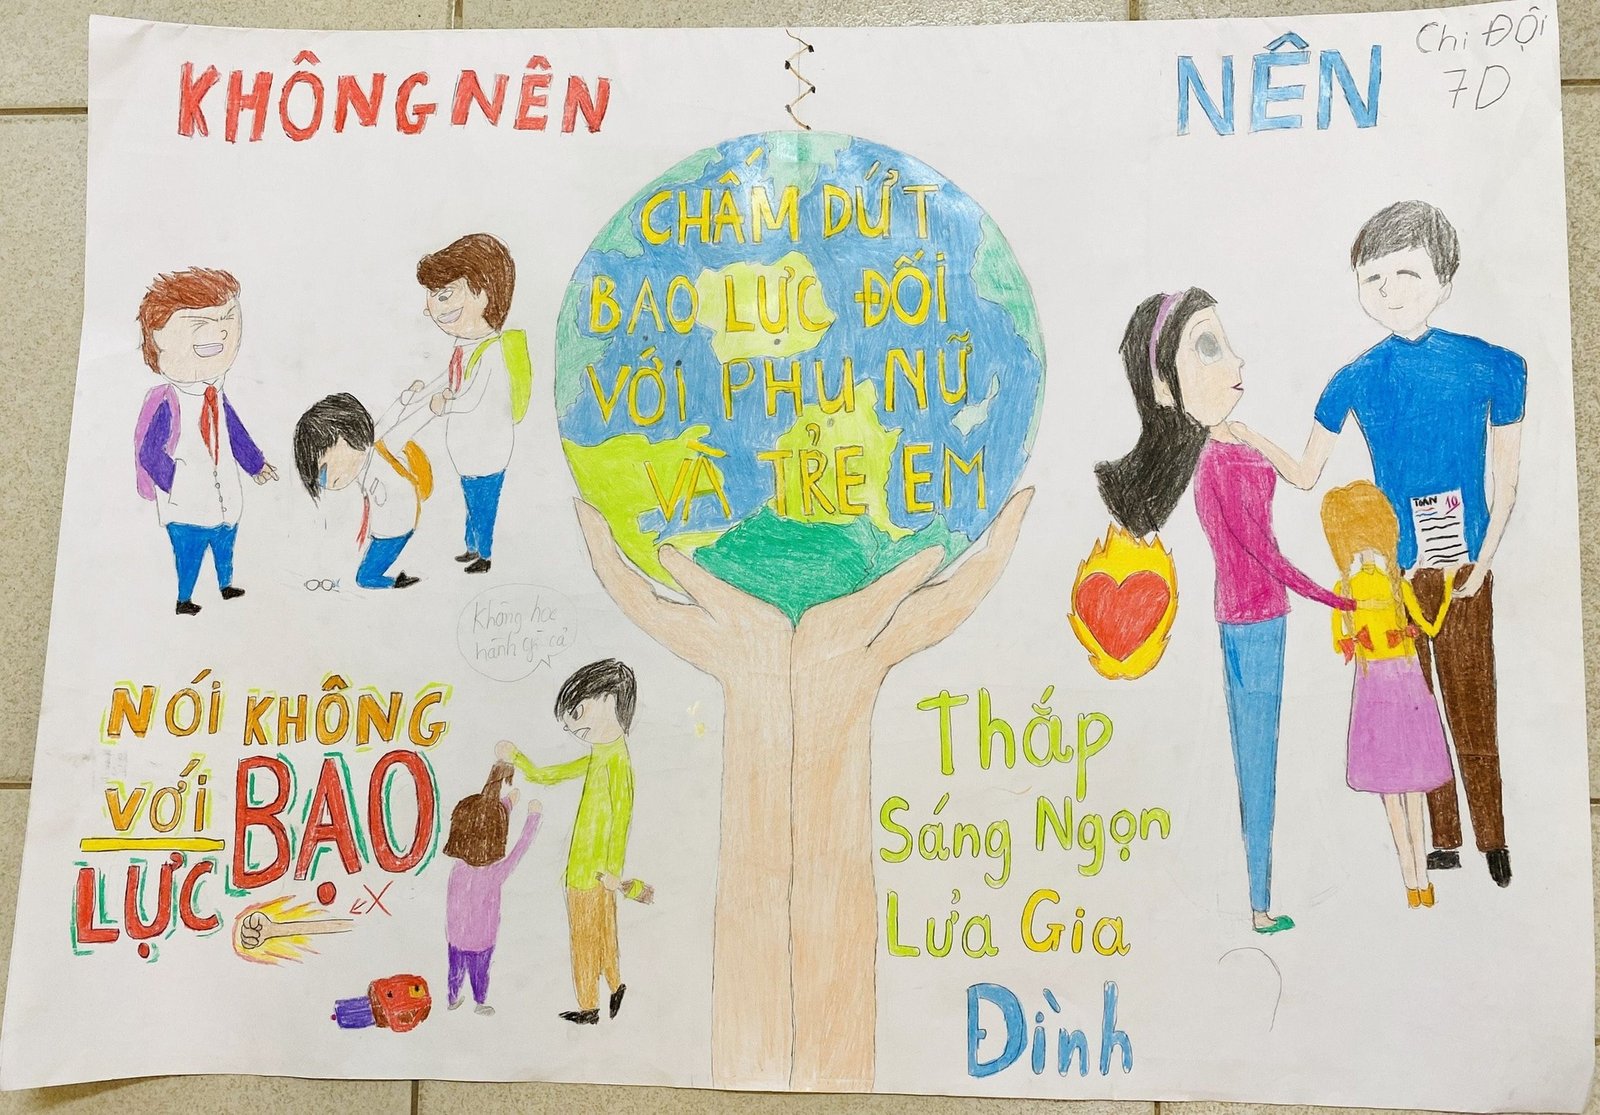 KHÔNG NÊN
NÊN
Chi Đội
7D
CHẤM DỨT
BẠO LỰC ĐỐI
VỚI PHỤ NỮ
VÀ TRẺ EM
TOÁN 10
Không học
hành gì cả
NÓI KHÔNG
VỚI BẠO
LỰC
X
Thắp
Sáng Ngọn
Lửa Gia
Đình